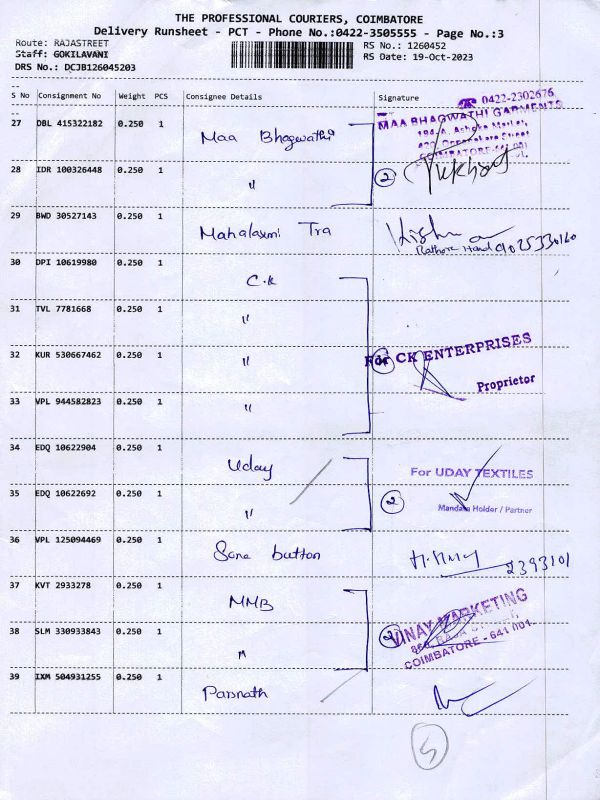 THE PROFESSIONAL COURIERS, COIMBATORE
Delivery Runsheet - PCT - Phone No.:0422-3505555 - Page No.:3
Route: RAJASTREET
RS No.: 1260452
Staff: GOKILAVANI
RS Date: 19-Oct-2023
DRS No.: DCJB126045203
S No Consignment No Weight PCS Consignee Details Signature
0422-2302676
MAA BHAGWATHI GARMENTS
27 DBL 415322182 0.250 1 Maa Bhagwathi
COIMBATORE-641 001
28 IDR 100326448 0.250 1 " 2
29 BWD 30527143 0.250 1 Mahalaxmi Tra
30 DPI 10619980 0.250 1 C.K
31 TVL 7781668 0.250 1 "
32 KUR 530667462 0.250 1 " For CK ENTERPRISES
Proprietor
33 VPL 944582823 0.250 1 "
34 EDQ 10622904 0.250 1 Uday For UDAY TEXTILES
35 EDQ 10622692 0.250 1 " 2 Mandate Holder / Partner
36 VPL 125094469 0.250 1 Sona button 2393101
37 KVT 2933278 0.250 1 MMB
VINAY MARKETING
38 SLM 330933843 0.250 1 " 2
COIMBATORE - 641 001.
39 IXM 504931255 0.250 1 Parsnath
5